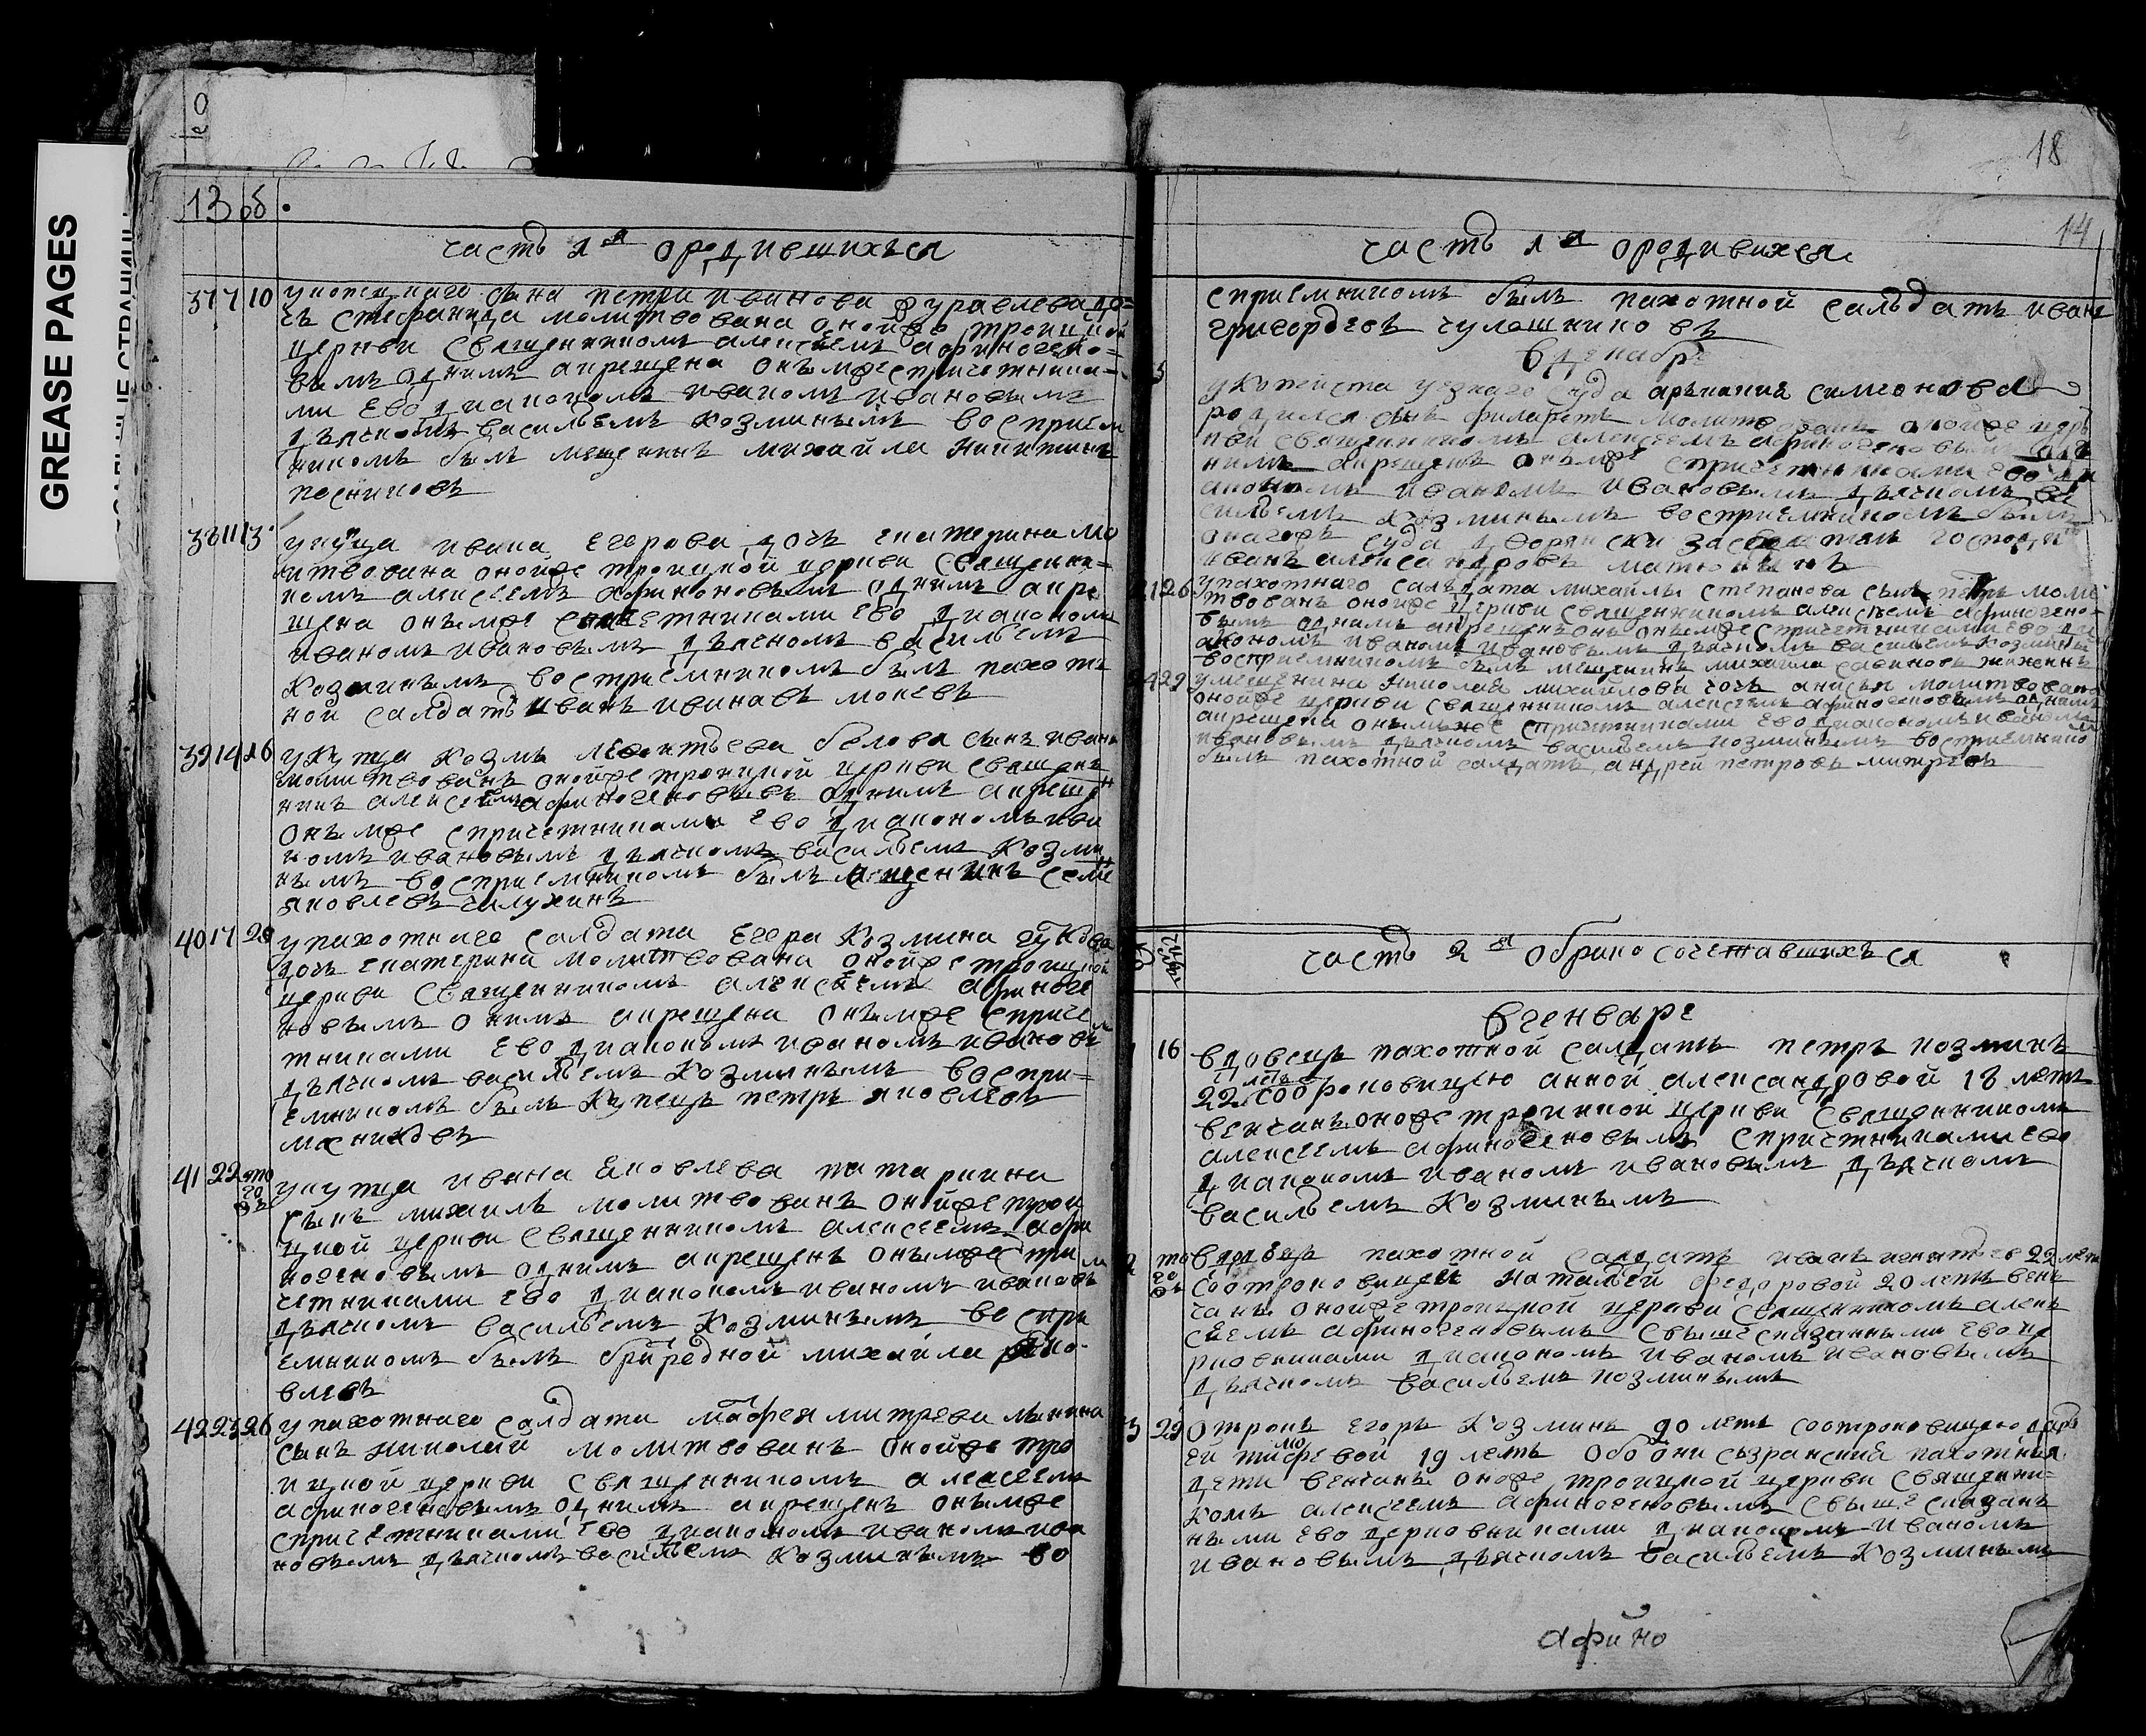 GREASE PAGES
13 об.
часть 1я ородившихъся
37 7 10 укопеднаго сына петра иванова журавлева до=
чь стефанида молитвована онойже троицкой
церкви священникомъ алексеемъ афиногено=
вымъ однимъ акрещена онымже спричетника=
ми ево диакономъ иваномъ ивановымъ
дьячкомъ васильемъ козминымъ восприем
никомъ былъ мещенинъ михайла никитинъ
песниковъ
38 11 13 укупца ивана егорова дочь екатерина мо
литвована онойже троицкой церкви священи=
комъ алексеемъ афиноновымъ однимъ акре
щена онымже спричетниками ево диакономъ
иваномъ ивановымъ дьячкомъ васильемъ
козминымъ восприемникомъ былъ пахот
ной салдатъ иванъ ивинавъ моневъ
39 14 16 укупца козмы леонтьева белова сынъ иванъ
молитвованъ онойже троицкой церкви священ
никъ алексеемъ афиногеновымъ однимъ акреще
онымже спричетниками ево диакономъ ива
номъ ивановымъ дьячкомъ васильемъ козми
нымъ восприемникомъ былъ мещенинъ семе
яковлевъ чилухинъ
40 17 20 упахотнаго салдата егора козмина
дочь екатерина молитвована онойже троицкой
церкви священникомъ алексеемъ афиноге
новымъ онимъ акрещена онымже сприче
тниками ево диакономъ иваномъ ивановы
дьячкомъ васильемъ козминымъ воспри=
емникомъ былъ купецъ петръ яковлевъ
масниковъ
41 22 того жъ укупца ивана яковлева татаркина
сынъ михаилъ молитвованъ онойже трои
цкой церкви священникомъ алексеемъ афи
ногеновымъ однимъ акрещенъ онымже при
четниками ево диакономъ иваномъ ивановы
дьячкомъ васильемъ козминымъ воспри
емникомъ былъ михайла яко-
влевъ
42 23 26 упахотнаго салдата матфея митрева
сынъ николай молитвованъ онойже тро
ицкой церкви священникомъ алексеемъ
афиногеновымъ однимъ акрещенъ онымже
спричетниками ево диакономъ иваномъ ива
новымъ дьячкомъ васильемъ козминымъ во
18
14
часть 1я ородивихся
сприемникомъ былъ пахотной сальдатъ иванъ
григорьевъ чулошниковъ
вдекабре
укопеиста уезнаго суда аръкания симеонова
родился сынъ филаретъ молитвованъ онойже цер
кви священникомъ алексеемъ афиногеновымъ од
нимъ акрещенъ онымже спричетниками ево ди
акономъ иваномъ ивановымъ дьячкомъ ва
сильемъ козминымъ восприемникомъ былъ
онагожъ суда дворянски заседатель господи
иванъ александровъ матюнинъ
21 26 упахотнаго салъдата михайлы степанова сынъ петръ моли
твованъ онойже церкви священникомъ алексеемъ афиногено-
вымъ однимъ акрещенъ онъ онымже спричетниками ево ди
акономъ иваномъ ивановымъ дьячкомъ васильемъ козминым
восприемникомъ былъ мещенинъ михайла савиновъ
29 умещенина николая михайлова дочь анисья молитвована
онойже церкви священникомъ алексеемъ афиногеновымъ однимъ
акрещена онымже спричетниками ево диакономъ иваномъ
ивановымъ дьячкомъ васильемъ козминымъ восприемнико
былъ пахотной салдатъ андрей петровъ митревъ
часть 2я обракосочетавшихъся
вгенваре
16 вдовецъ пахотной салдатъ петръ козминъ
22 летъ соотроковицею анной александровой 18 летъ
венчанъ оноже троицкой церкви священникомъ
алексеемъ афиногеновымъ спричетниками ево
диакономъ иваномъ ивановымъ дьячкомъ
васильемъ козминымъ
2 того жъ вдовецъ пахотной салдатъ иванъ игнатьевъ 22 летъ
соотроковицей наталией федоровой 20 летъ вен
чанъ онойже троицкой церкви священникомъ алек
сеемъ афиногеновымъ свышесказанными ево це
рковниками диакономъ иваномъ ивановымъ
дьячкомъ васильемъ козминымъ
3 29 отрокъ егоръ козминъ 20 летъ соотроковицею дарь
ей тимофевой 19 летъ обо они сызранския пахотныя
дети венчанъ оноже троицкой церкви священи=
комъ алексеемъ афиногеновымъ свышесказан
ными ево церковниками диакономъ иваномъ
ивановымъ дьячкомъ васильемъ козминымъ
афино